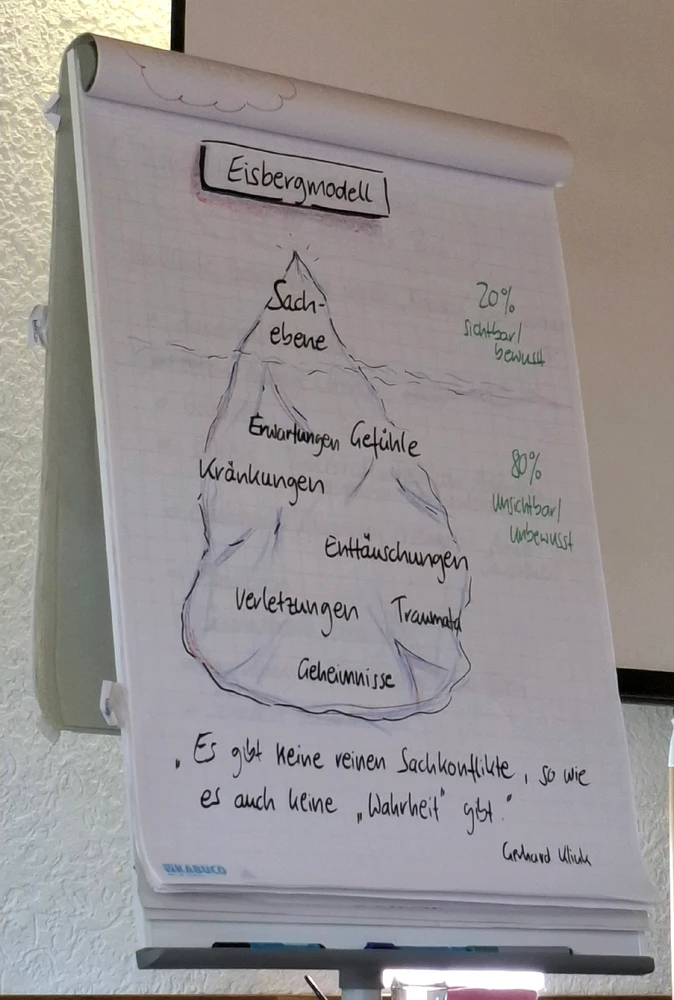 Eisbergmodell
Sach-
ebene
20%
sichtbar/
bewusst
Erwartungen Gefühle
Kränkungen
80%
unsichtbar/
unbewusst
Enttäuschungen
Verletzungen Traumata
Geheimnisse
„Es gibt keine reinen Sachkonflikte, so wie
es auch keine „Wahrheit" gibt."
Gerhard
KABUCO